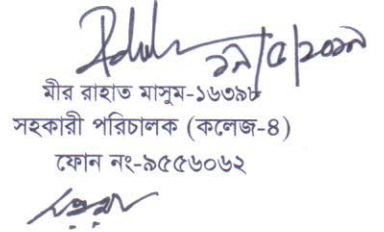 ১৯/৫/২০১৯
মীর রাহাত মাসুম-১৬৩৯৮
সহকারী পরিচালক (কলেজ-৪)
ফোন নং-৯৫৫৬০৬২